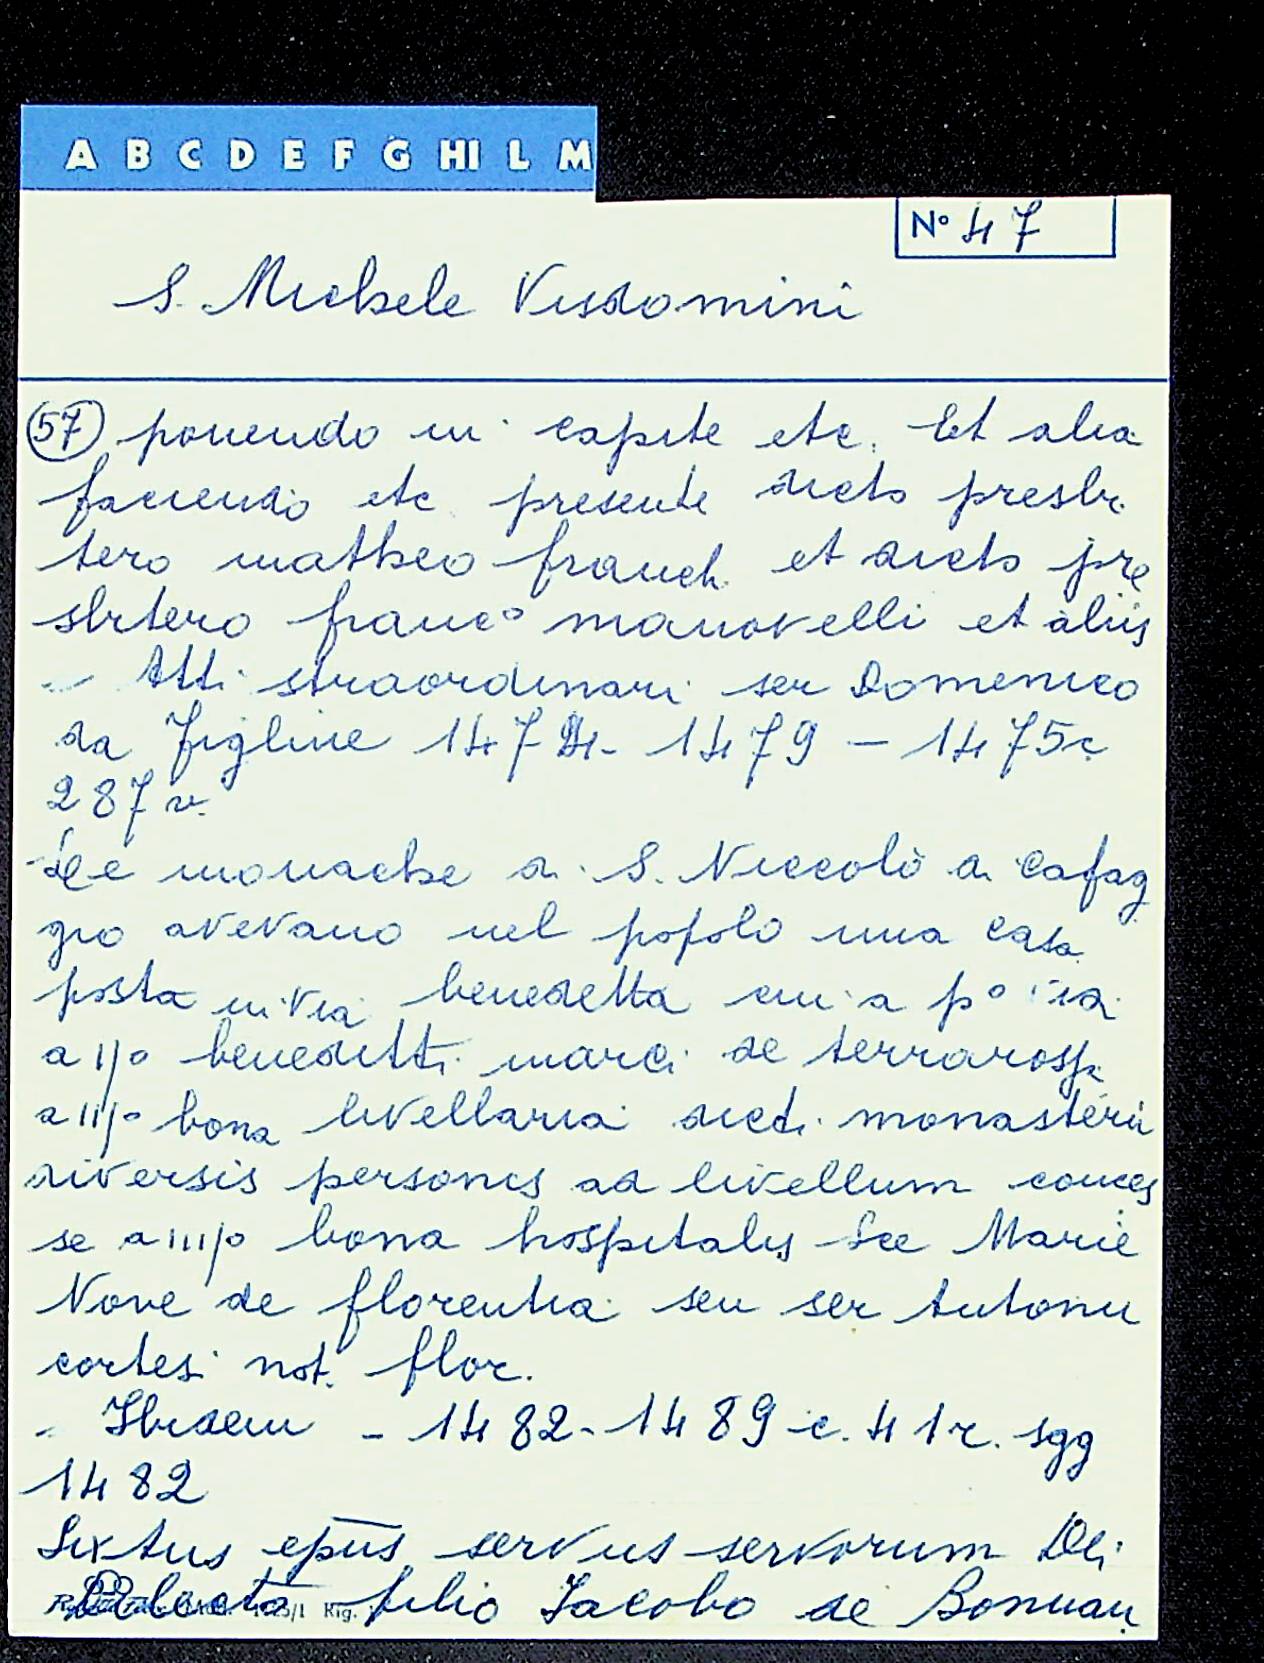 A B C D E F G HI L M
N° 47
S. Michele Visdomini
57 ponendo in capite etc. Et alia
faciendo etc presente dicto presbi
tero matheo franch. et dicto pre
sbitero franc° manovelli et aliis
- Atti straordinari ser Domenico
da Figline 1474-1479 - 1475 c
287 v.
Le monache di S. Niccolò di Cafag
gio avevano nel popolo una casa
posta in via benedetta cui a p° via
a II° beneditti marci de terrarossa
a III° bona livellaria dicti monasterii
diversis personis ad livellum conces
se a IIII° bona hospitalis Sce Marie
Nove de florentia seu ser Antonii
cortesi not. flor.
- Ibidem - 1482-1489 c. 41r. sgg
1482
Sixtus epus servus servorum Dei
Dilecto filio Jacobo de Bonnan